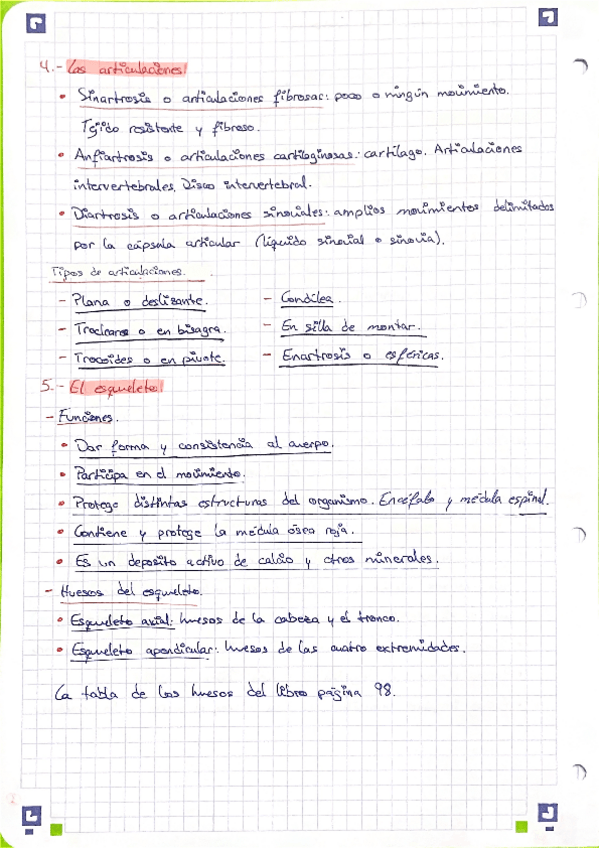 4.- Las articulaciones
• Sinartrosis o articulaciones fibrosas: poco o ningún movimiento.
Tejido resistente y fibroso.
• Anfiartrosis o articulaciones cartilaginosas: cartílago. Articulaciones
intervertebrales. Disco intervertebral.
• Diartrosis o articulaciones sinoviales: amplios movimientos delimitados
por la cápsula articular (líquido sinovial o sinovia).
Tipos de articulaciones.
- Plana o deslizante. - Condílea.
- Trocleares o en bisagra. - En silla de montar.
- Trocoides o en pivote. - Enartrosis o esféricas.
5.- El esqueleto
- Funciones.
• Dar forma y consistencia al cuerpo.
• Participa en el movimiento.
• Protege distintas estructuras del organismo. Encéfalo y médula espinal.
• Contiene y protege la médula ósea roja.
• Es un deposito activo de calcio y otros minerales.
- Huesos del esqueleto.
• Esqueleto axial: huesos de la cabeza y el tronco.
• Esqueleto apendicular: huesos de las cuatro extremidades.
La tabla de los huesos del libro página 98.